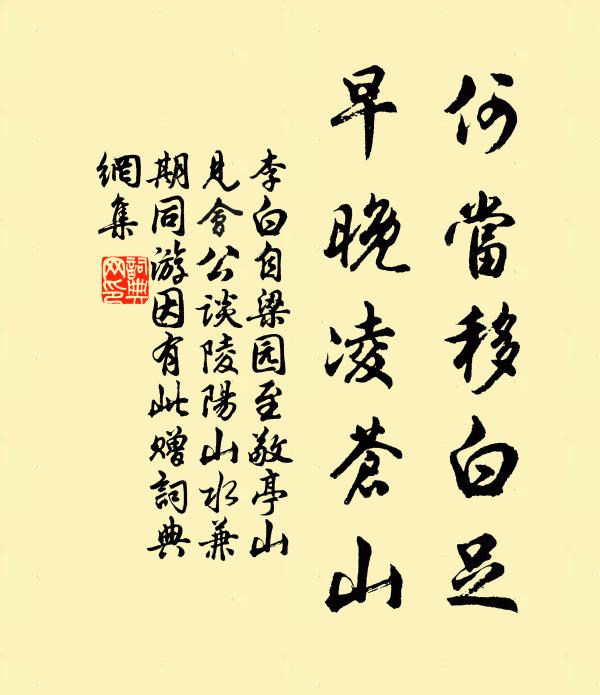 何當移白足
早晚凌蒼山
李白自梁园至敬亭山
見會公谈陵陽山水兼
期同游因有此赠詞典
網集
詞典
网印